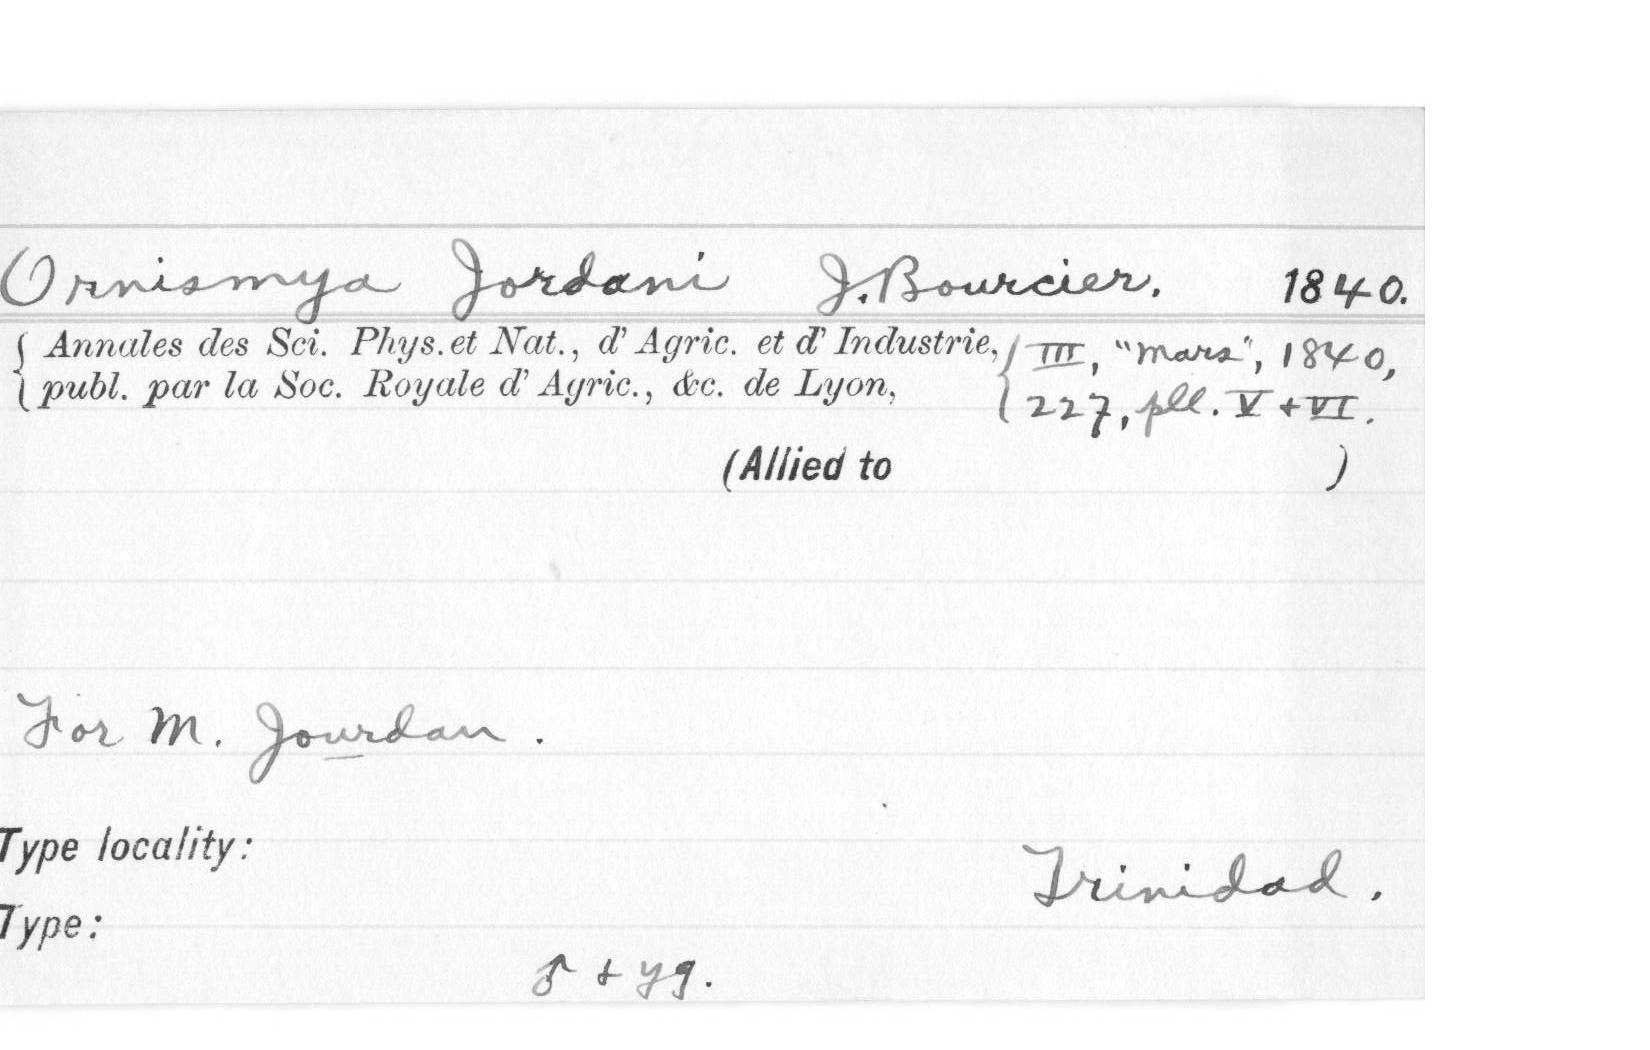 Ornismya Jordani J. Bourcier. 1840.
Annales des Sci. Phys. et Nat., d' Agric. et d' Industrie, III, "Mars", 1840,
publ. par la Soc. Royale d' Agric., &c. de Lyon, 227, pll. V + VI.
(Allied to )
For M. Jourdan.
Type locality:
Trinidad.
Type:
♂ + yg.